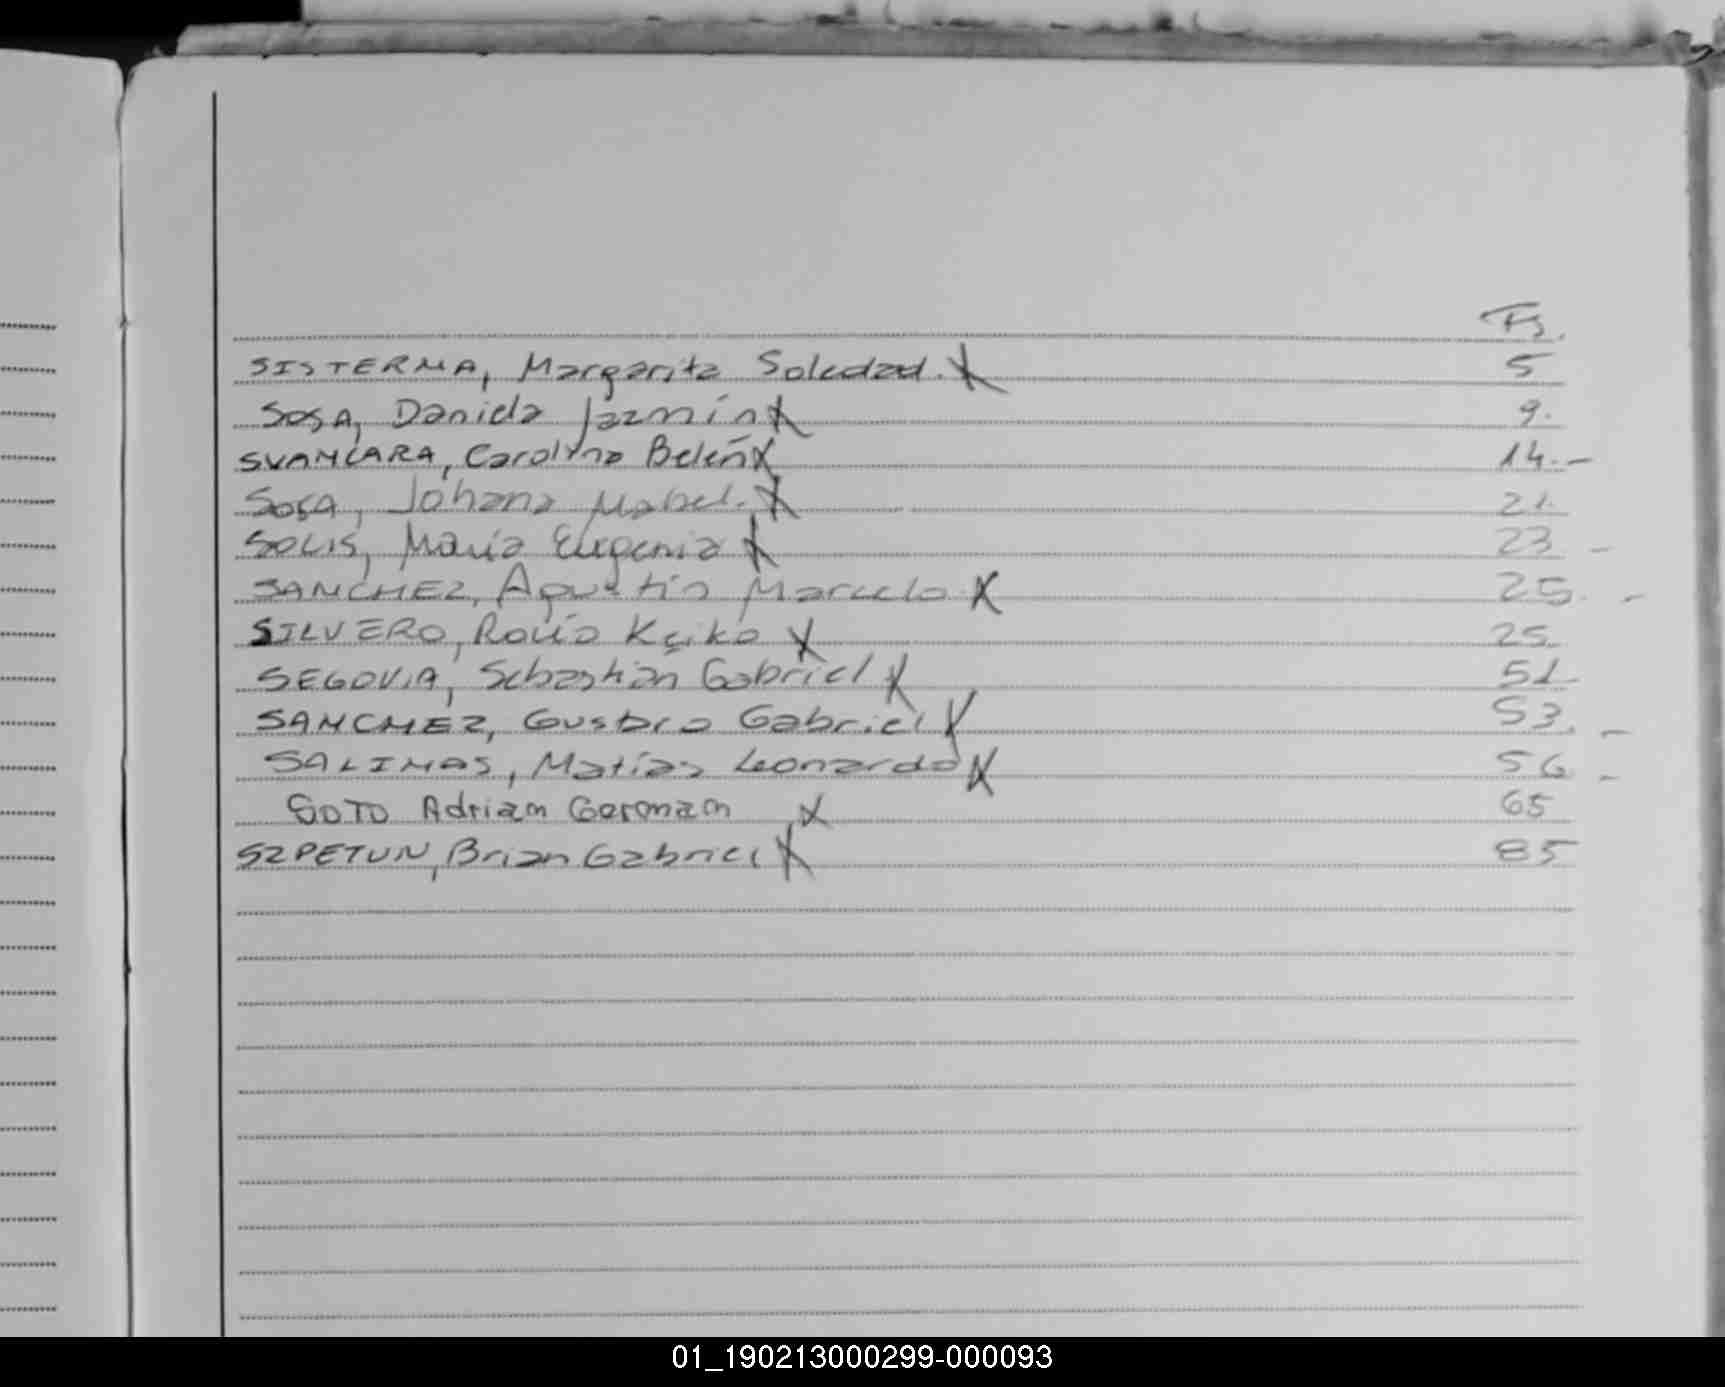 Fs.
SISTERNA, Margarita Soledad. X 5
SOSA, Daniela Jazmín X 9.
SVANCARA, Carolyna Belén X 14.-
SOSA, Johana Mabel. X 21.
SOLIS, María Eugenia X 23 -
SANCHEZ, Agustín Marcelo X 25. -
SILVERO, Rocío Keiko X 25
SEGOVIA, Sebastián Gabriel X 51
SANCHEZ, Gustavo Gabriel X 53. -
SALINAS, Matías Leonardo X 56 -
SOTO Adrian German X 65
SZPETUN, Brian Gabriel X 85
01_190213000299-000093